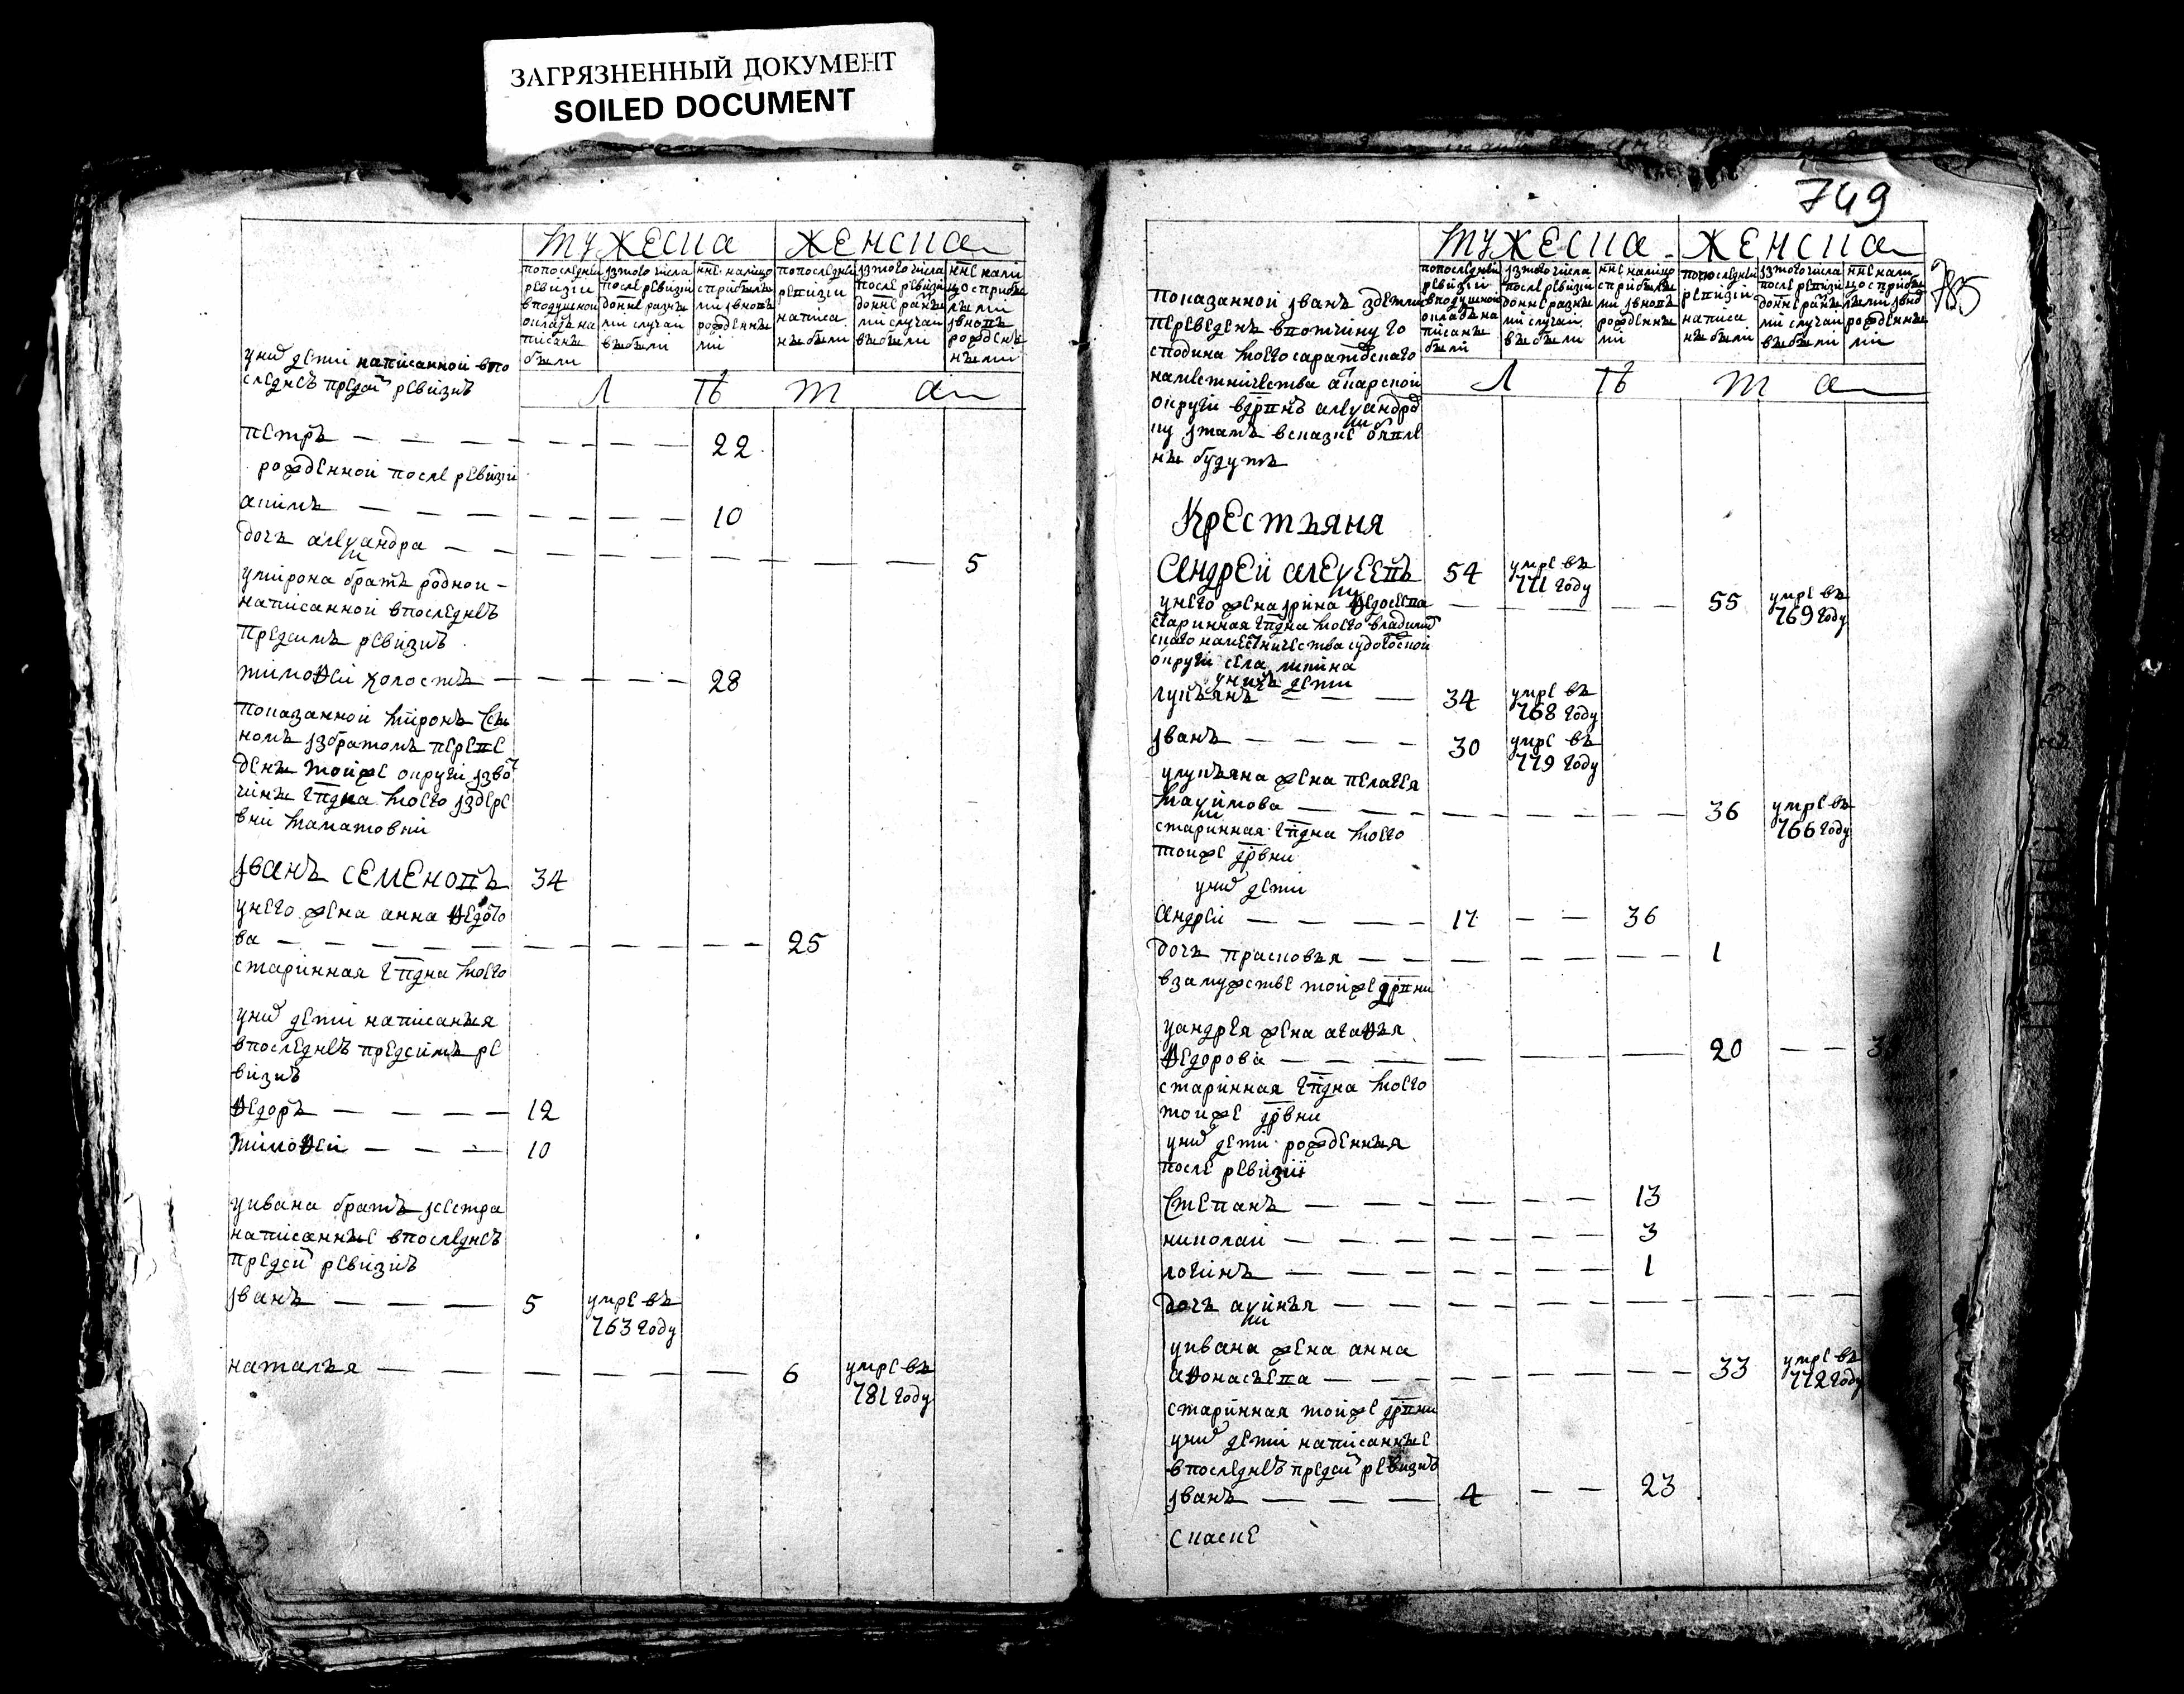 ЗАГРЯЗНЕННЫЙ ДОКУМЕНТ
SOILED DOCUMENT
мужеска женска
попоследней ревизии вподушной окладъ написаны были
изтого числа после ревизии доннѣ разными случаи выбыли
ннѣ налицо сприбылыми ивновь рожденными
попоследней ревизии написаны были
изтого числа после ревизии доннѣ разными случаи выбыли
ннѣ налицо сприбылыми ивновь рожденными
л ѣ т а
уних дети написанной впо
следнеѣ предсим ревизиѣ
петръ — — — — — — 22
рожденной после ревизіи
акимъ — — — — — — 10
дочь алеѯандра — — — — — — — 5
умирона братъ родной
написанной впоследнеѣ
предсимъ ревизиѣ
тимоѳей холостъ — — — — — 28
показанной миронъ Сы
номъ избратомъ переве
денъ тойже округи изво
чины гпдна моего издере
вни маматовки
иванъ семеновъ 34
унего жена анна ѳедото
ва — — — — — — — — — 25
старинная гпдна моего
уних дети написаныя
впоследнеѣ предсимъ ре
визиѣ
ѳедоръ — — — — 12
тимоѳей — — — 10
уивана братъ исестра
написанные впоследнеѣ
предсим ревизиѣ
иванъ — — — 5 умре въ
763 году
наталья — — — — — — 6 умре въ
781 году
749
785
мужеска женска
попоследней ревизии вподушной окладъ написаны были
изтого числа после ревизии доннѣ разными случаи выбыли
ннѣ налицо сприбылыми ивновь рожденными
попоследней ревизии написаны были
изтого числа после ревизии доннѣ разными случаи выбыли
ннѣ налицо сприбылыми ивновь рожденными
л ѣ т а
показанной иванъ здетми
переведенъ вотчину го
сподина моего саратовскаго
наместничества аткарской
округи вдрвнь алеѯандров
ку итамъ всказке обявле
ны будутъ
Крестьяня
андрей алеѯеевъ 54 умре въ
771 году
унего жена ирина ѳедосеева — — — — 55 умре въ
769 году
старинная гпдна моего владимир
скаго наместничества судогодской
округи села
уних дети
лукьянъ — — — 34 умре въ
768 году
иванъ — — — — 30 умре въ
779 году
улукьяна жена пелагея
маѯимова — — — — — — — 36 умре въ
766 году
старинная гпдна моего
тоиже дрвни
уних дети
андрей — — — — 17 — — 36
дочь прасковья — — — — — — 1
взамужстве тойже дрвни
уандрея жена агаѳья
ѳедорова — — — — — — 20 — —
старинная гпдна моего
тоиже дрвни
уних дети рожденныя
после ревизии
Степанъ — — — — — — 13
николаи — — — — — — 3
логинъ — — — — — — 1
дочь аѯинья — — — — — — — — — —
уивана жена анна
аѳонасьева — — — — — — 33 умре въ
772 году
старинная тоиже дрвни
уних дети написанные
впоследнеѣ предсим ревизиѣ
иванъ — — — 4 — — 23